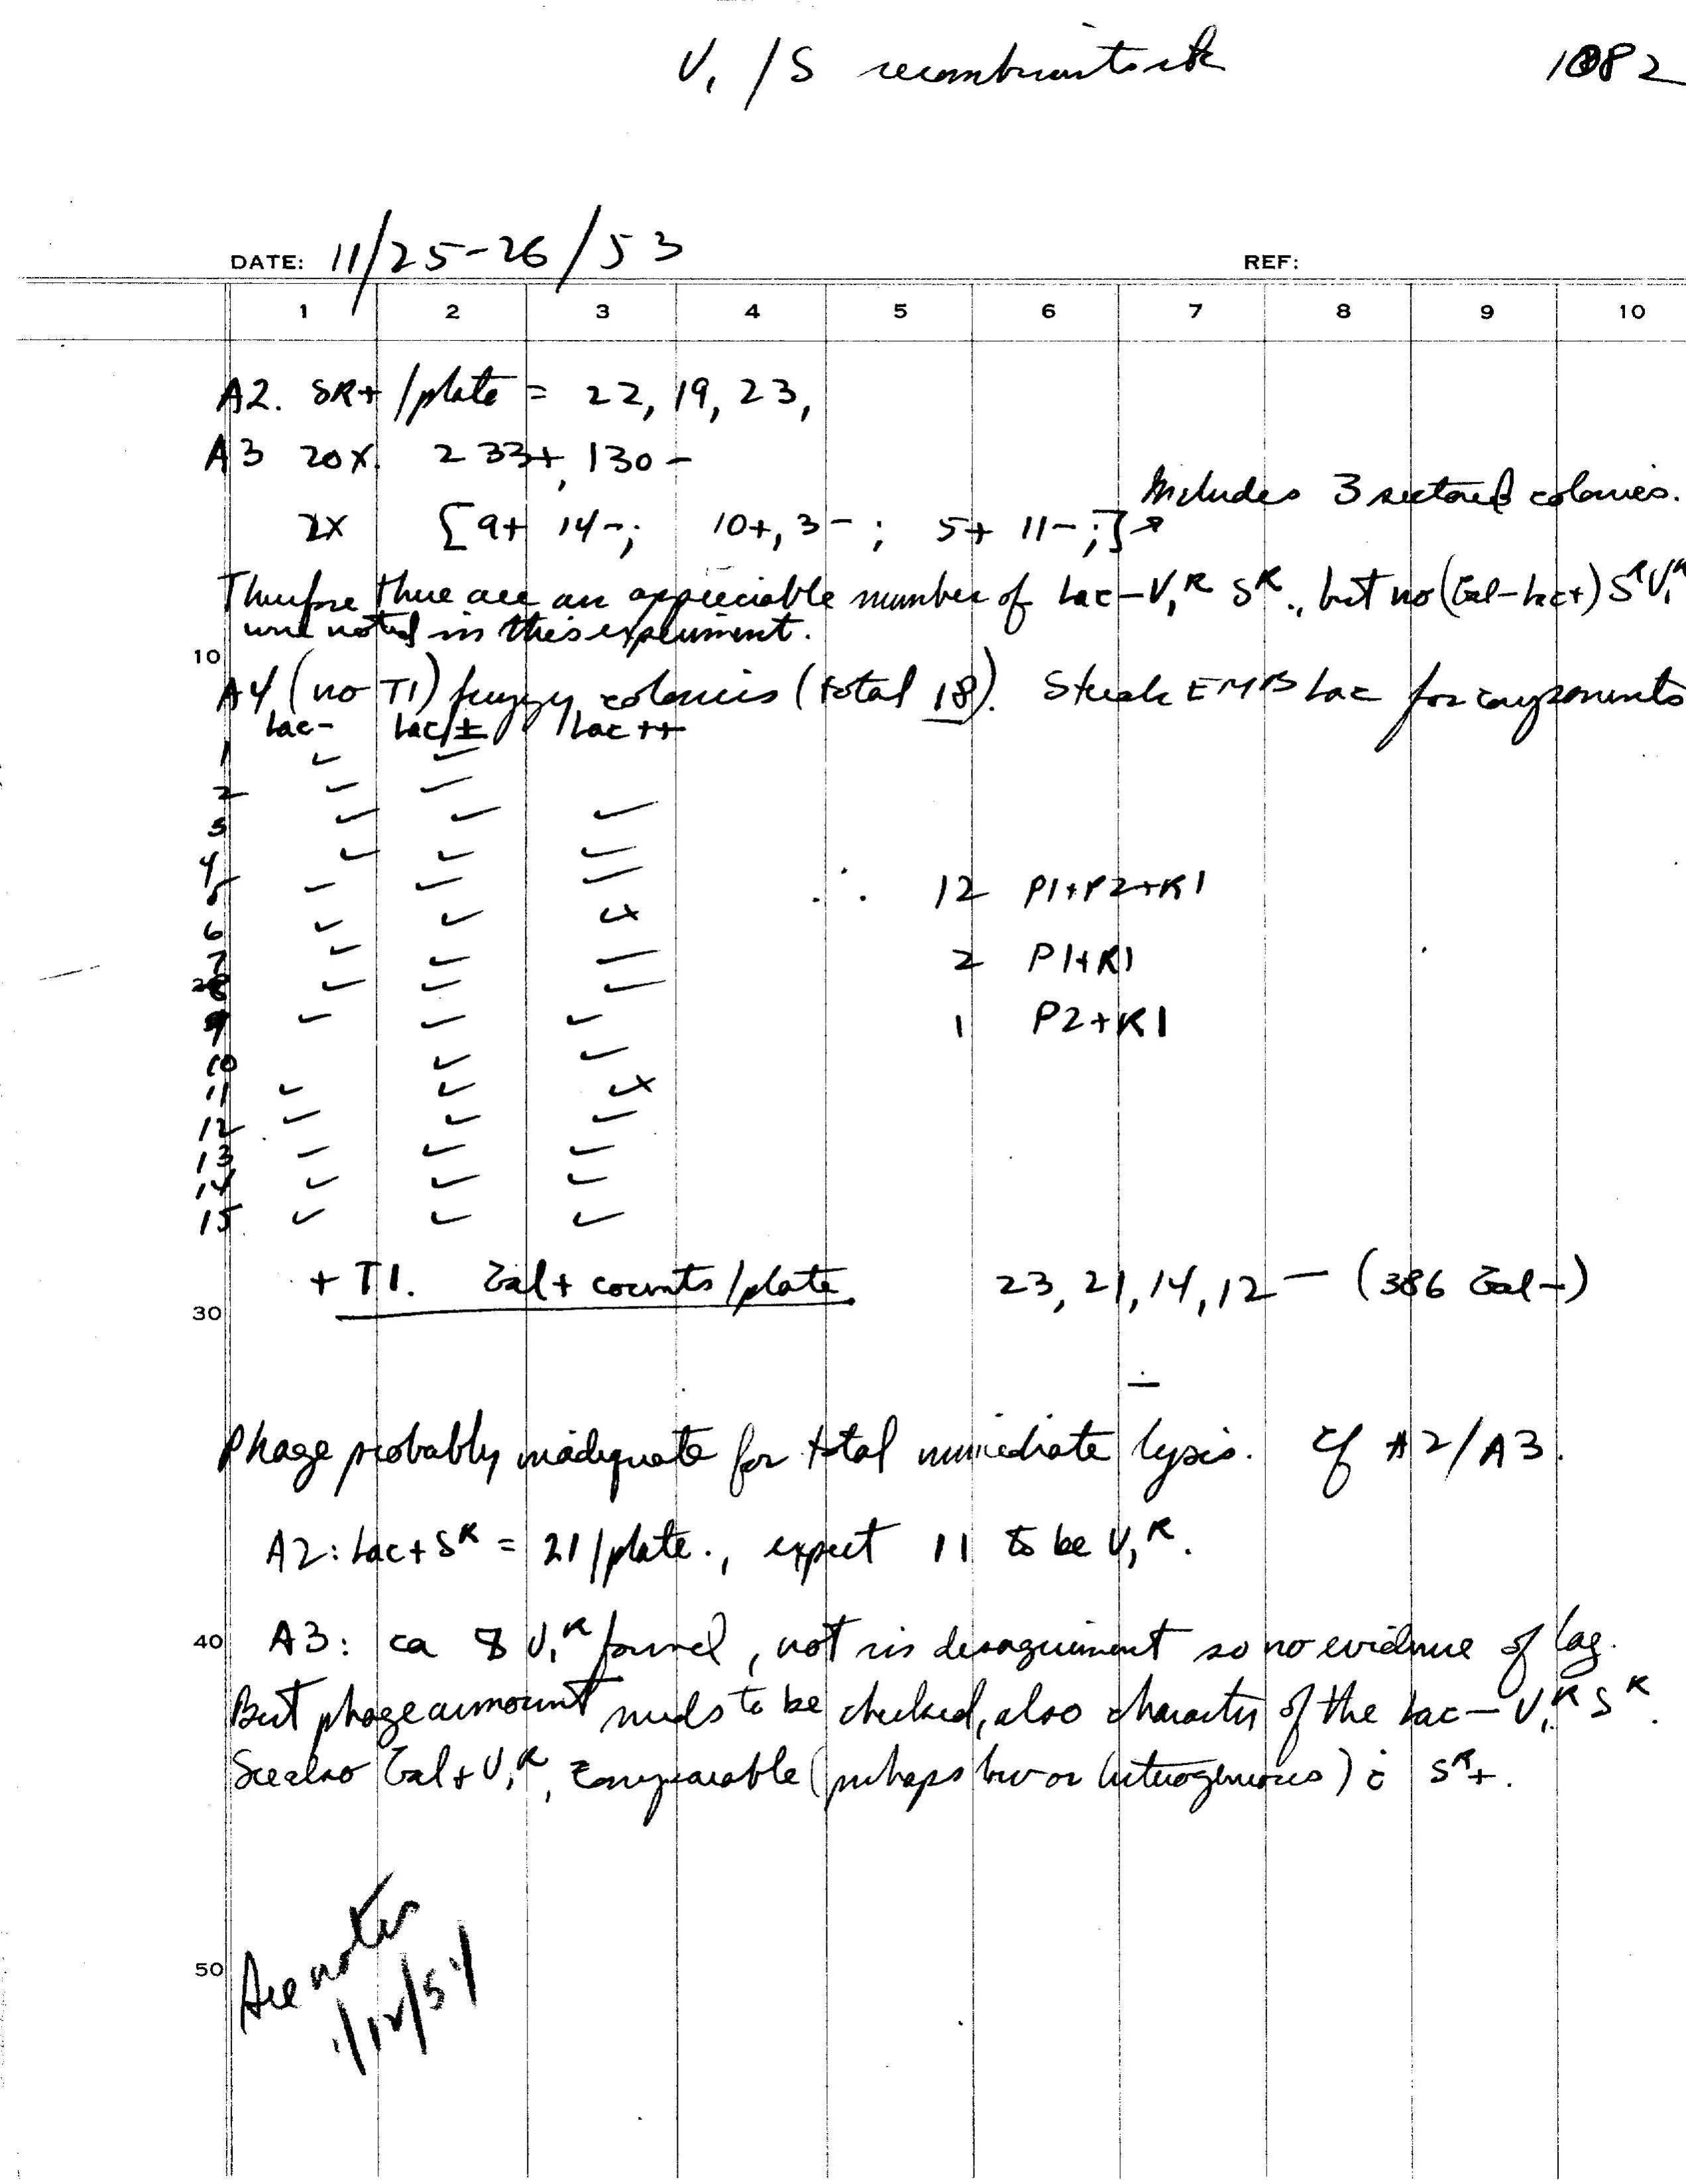 V₁ / S recombinants 1082
DATE: 11/25-26/53 REF:
1 2 3 4 5 6 7 8 9 10
A2. SR+ /plate = 22, 19, 23,
A3 20x. 233+, 130-
Includes 3 sectored colonies.
2x [9+ 14-; 10+, 3-; 5+ 11-;]
Therefore there are an appreciable number of Lac-V₁ᴿ Sᴿ., but no (Gal-Lac+) SᴿV₁ᴿ
were noted in this experiment.
10
A4 (no T1) fuzzy colonies (total 18). Streak EMB Lac for components
Lac- Lac± Lac++
1 ✓ ✓
2 ✓ ✓
3 ✓ ✓ ✓
4 ✓ ✓ ✓
5 ✓ ✓ ✓ ∴ 12 P1+P2+R1
6 ✓ ✓ ✓x
7 ✓ ✓ ✓ 2 P1+R1
8 ✓ ✓ ✓
9 ✓ ✓ ✓ 1 P2+R1
10 ✓ ✓
11 ✓ ✓ ✓x
12 ✓ ✓ ✓
13 ✓ ✓ ✓
14 ✓ ✓ ✓
15 ✓ ✓ ✓
+ T1. Gal+ counts/plate. 23, 21, 14, 12 — (386 Gal-)
30
Phage probably inadequate for total immediate lysis. cf A2/A3.
A2: Lac+Sᴿ = 21/plate., expect 11 to be V₁ᴿ.
40 A3: ca 8 V₁ᴿ found, not in disagreement so no evidence of lag.
But phage amount needs to be checked, also character of the Lac-V₁ᴿ Sᴿ.
See also Gal+V₁ᴿ, comparable (perhaps low or heterogeneous) c̄ Sᴿ+.
50
See notes
1/12/54